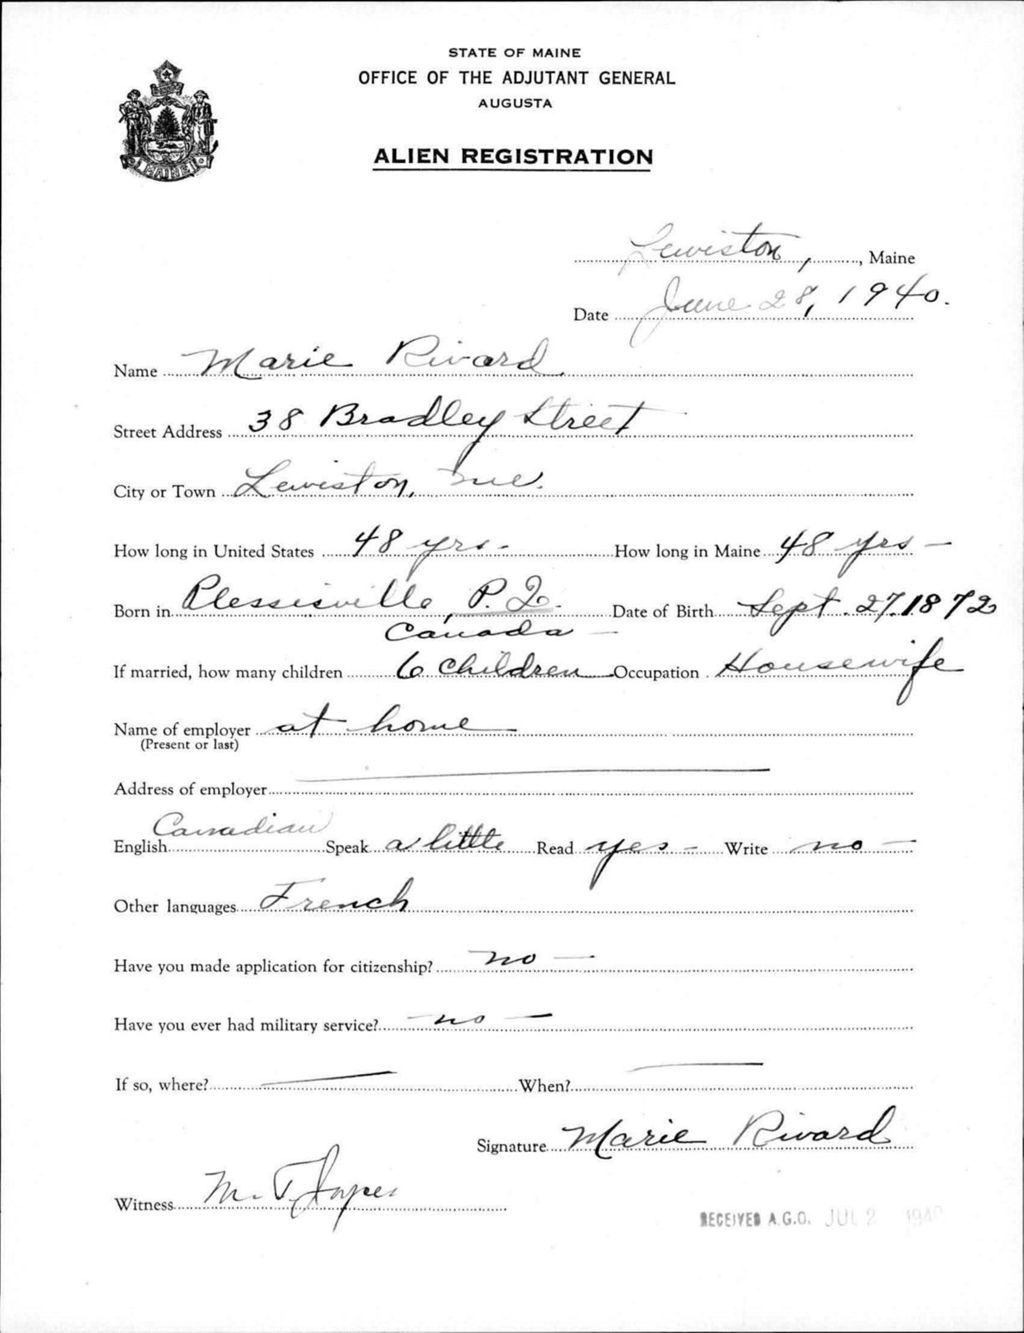 STATE OF MAINE
OFFICE OF THE ADJUTANT GENERAL
AUGUSTA
ALIEN REGISTRATION
MAINE
Lewiston, , Maine
Date June 28, 1940.
Name Marie Rivard
Street Address 38 Bradley Street
City or Town Lewiston, Me.
How long in United States 48 yrs - How long in Maine 48 yrs -
Born in Plessisville, P. Q. Date of Birth Sept. 27, 1872
Canada -
If married, how many children 6 children Occupation Housewife
Name of employer at home
(Present or last)
Address of employer
Canadian
English Speak a little Read yes - Write no -
Other languages French
Have you made application for citizenship? no -
Have you ever had military service? - no -
If so, where? When?
Signature Marie Rivard
Witness M. T.
RECEIVED A.G.O. JUL 2 1940